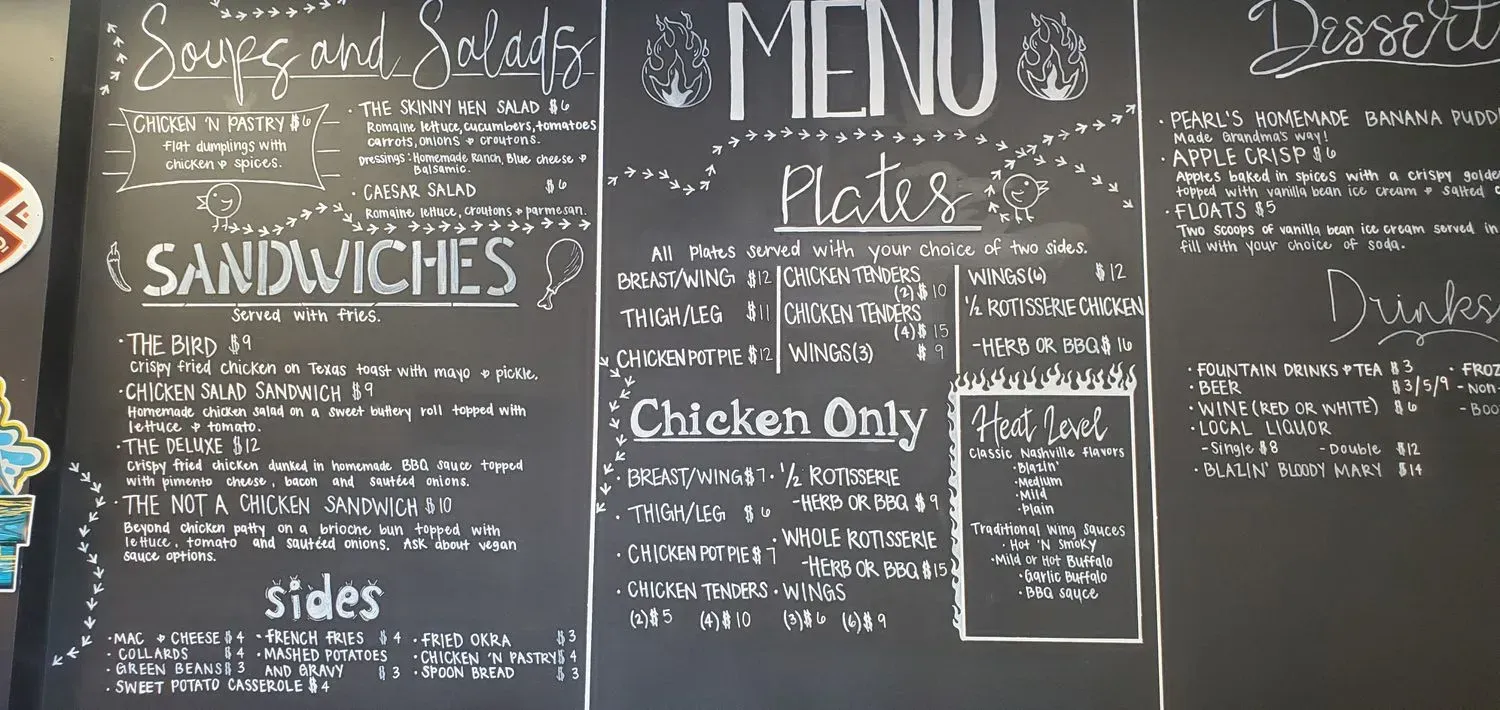 Soups and Salads
CHICKEN 'N PASTRY $6
flat dumplings with
chicken & spices.
· THE SKINNY HEN SALAD $6
Romaine lettuce, cucumbers, tomatoes
carrots, onions & croutons.
Dressings: Homemade Ranch, Blue cheese &
Balsamic.
· CAESAR SALAD $6
Romaine lettuce, croutons & parmesan.
SANDWICHES
Served with fries.
· THE BIRD $9
Crispy fried chicken on Texas toast with mayo & pickle.
· CHICKEN SALAD SANDWICH $9
Homemade chicken salad on a sweet buttery roll topped with
lettuce & tomato.
· THE DELUXE $12
Crispy fried chicken dunked in homemade BBQ sauce topped
with pimento cheese, bacon and sautéed onions.
· THE NOT A CHICKEN SANDWICH $10
Beyond chicken patty on a brioche bun topped with
lettuce, tomato and sautéed onions. Ask about vegan
sauce options.
sides
· MAC & CHEESE $4
· COLLARDS $4
· GREEN BEANS $3
· SWEET POTATO CASSEROLE $4
· FRENCH FRIES $4
· MASHED POTATOES
AND GRAVY $3
· FRIED OKRA $3
· CHICKEN 'N PASTRY $4
· SPOON BREAD $3
MENU
Plates
All Plates served with your choice of two sides.
BREAST/WING $12
THIGH/LEG $11
CHICKEN POT PIE $12
CHICKEN TENDERS
(2) $10
CHICKEN TENDERS
(4) $15
WINGS (3) $9
WINGS (6) $12
½ ROTISSERIE CHICKEN
-HERB OR BBQ $16
Chicken Only
· BREAST/WING $7
· THIGH/LEG $6
· CHICKEN POT PIE $7
· CHICKEN TENDERS
(2) $5 (4) $10
· ½ ROTISSERIE
-HERB OR BBQ $9
· WHOLE ROTISSERIE
-HERB OR BBQ $15
· WINGS
(3) $6 (6) $9
Heat Level
Classic Nashville flavors
· Blazin'
· Medium
· Mild
· Plain
Traditional Wing Sauces
· Hot 'N Smoky
· Mild or Hot Buffalo
· Garlic Buffalo
· BBQ sauce
Dessert
· PEARL'S HOMEMADE BANANA PUDD
Made Grandma's way!
· APPLE CRISP $6
Apples baked in spices with a crispy golde
topped with vanilla bean ice cream & salted
· FLOATS $5
Two scoops of vanilla bean ice cream served in
fill with your choice of soda.
Drinks
· FOUNTAIN DRINKS & TEA $3
· BEER $3/5/9
· WINE (RED OR WHITE) $6
· LOCAL LIQUOR
-Single $8 -Double $12
· BLAZIN' BLOODY MARY $14
· FROZ
-Non-
-Boo